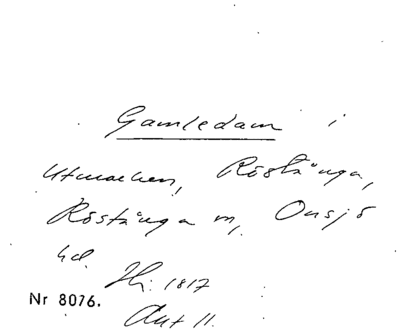 Gamledam i
utmarken, Röstånga,
Röstånga sn, Onsjö
hd. Hi: 1817
Nr 8076.
Akt 11.